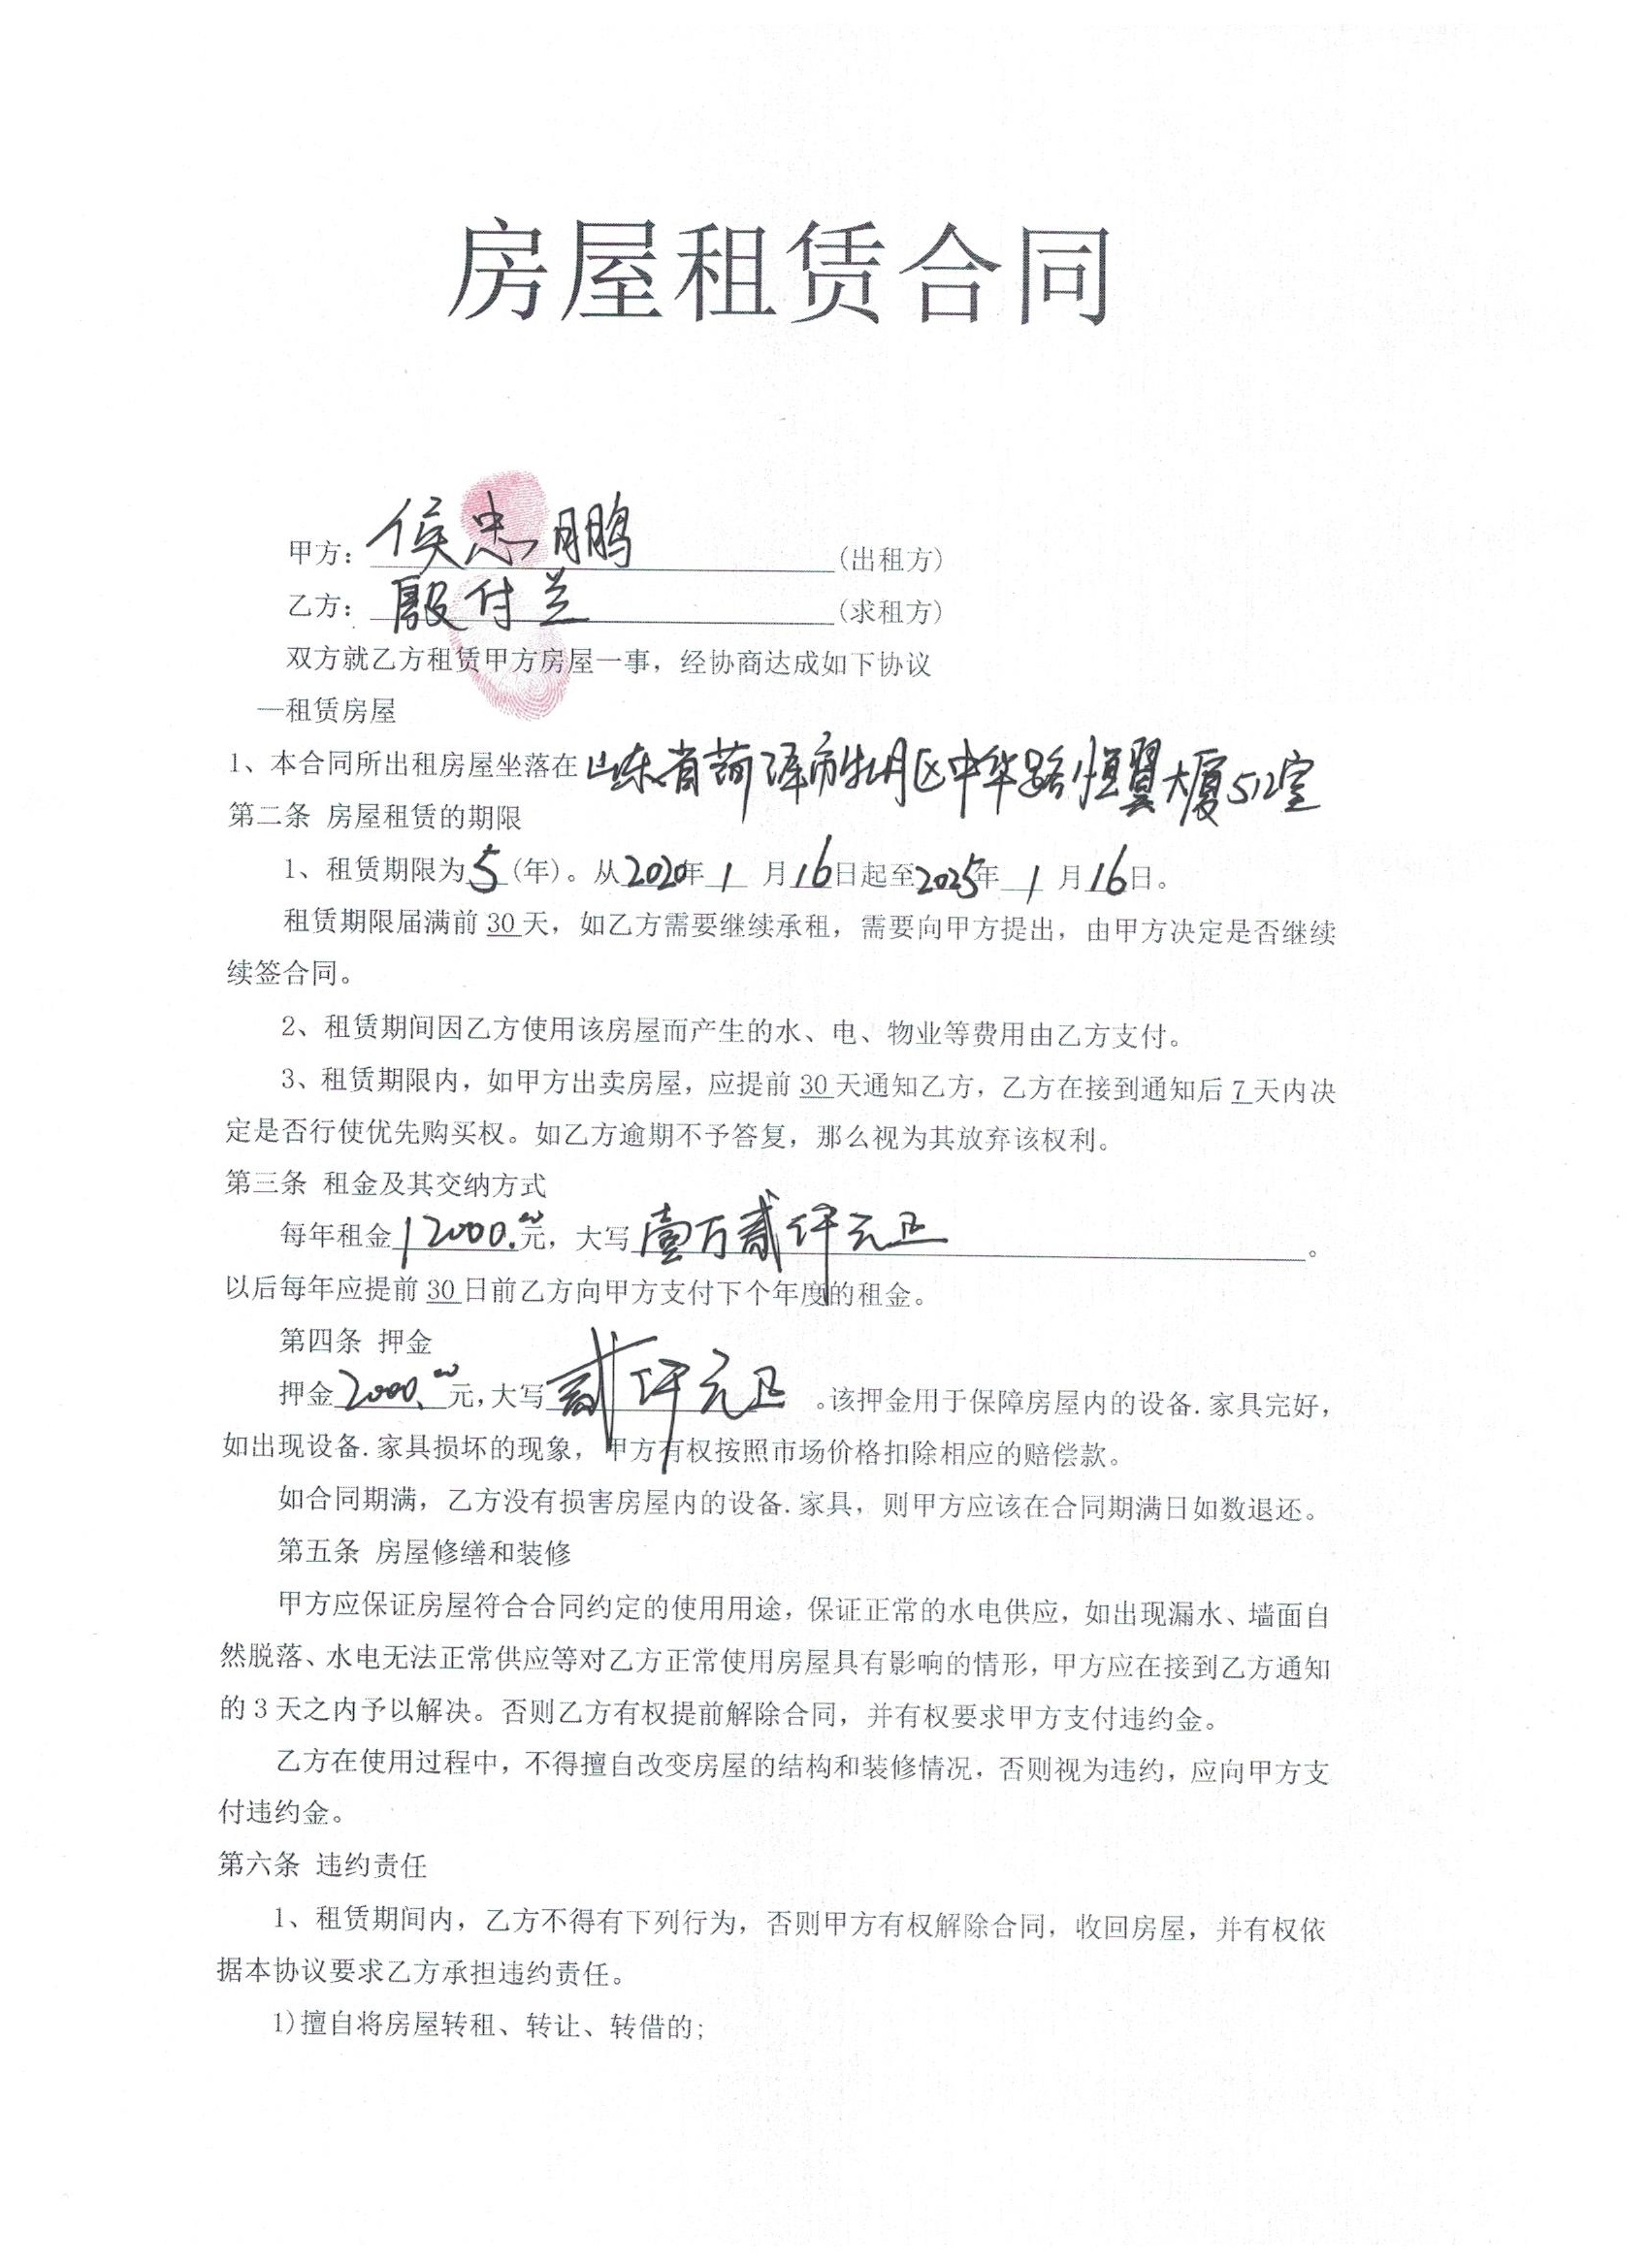 房屋租赁合同
甲方：侯忠鹏(出租方)
乙方：殷付兰(求租方)
双方就乙方租赁甲方房屋一事，经协商达成如下协议
一租赁房屋
1、本合同所出租房屋坐落在山东省菏泽市牡丹区中华路恒翼大厦512室
第二条 房屋租赁的期限
1、租赁期限为5(年)。从2020年1月16日起至2025年1月16日。
租赁期限届满前30天，如乙方需要继续承租，需要向甲方提出，由甲方决定是否继续
续签合同。
2、租赁期间因乙方使用该房屋而产生的水、电、物业等费用由乙方支付。
3、租赁期限内，如甲方出卖房屋，应提前30天通知乙方，乙方在接到通知后7天内决
定是否行使优先购买权。如乙方逾期不予答复，那么视为其放弃该权利。
第三条 租金及其交纳方式
每年租金12000.00元，大写壹万贰仟元正。
以后每年应提前30日前乙方向甲方支付下个年度的租金。
第四条 押金
押金2000.00元,大写贰仟元正。该押金用于保障房屋内的设备.家具完好，
如出现设备.家具损坏的现象，甲方有权按照市场价格扣除相应的赔偿款。
如合同期满，乙方没有损害房屋内的设备.家具，则甲方应该在合同期满日如数退还。
第五条 房屋修缮和装修
甲方应保证房屋符合合同约定的使用用途，保证正常的水电供应，如出现漏水、墙面自
然脱落、水电无法正常供应等对乙方正常使用房屋具有影响的情形，甲方应在接到乙方通知
的3天之内予以解决。否则乙方有权提前解除合同，并有权要求甲方支付违约金。
乙方在使用过程中，不得擅自改变房屋的结构和装修情况，否则视为违约，应向甲方支
付违约金。
第六条 违约责任
1、租赁期间内，乙方不得有下列行为，否则甲方有权解除合同，收回房屋，并有权依
据本协议要求乙方承担违约责任。
1)擅自将房屋转租、转让、转借的;